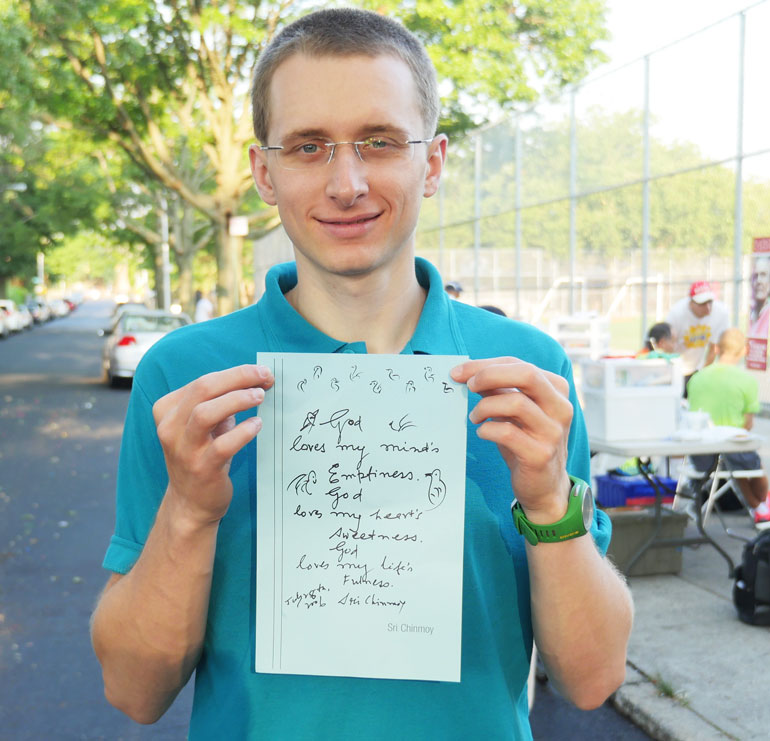 God
loves my mind's
Emptiness.
God
loves my heart's
Sweetness.
God
loves my life's
Fulness.
Sri Chinmoy
Sri Chinmoy